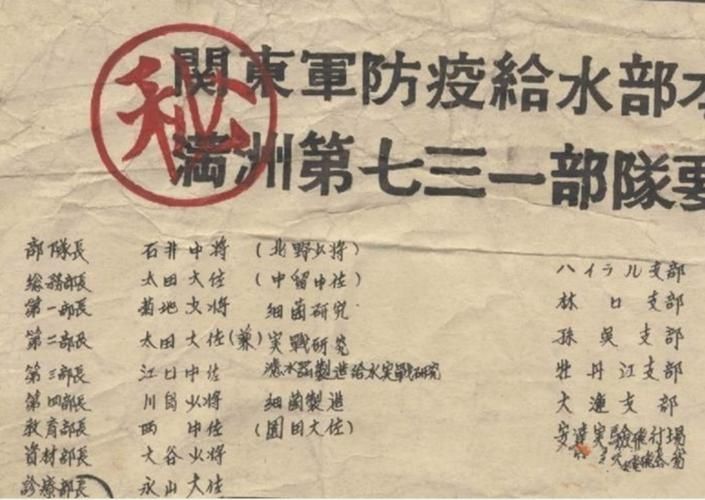 秘
関東軍防疫給水部本
満洲第七三一部隊要
部隊長 石井中将 (北野少将)
総務部長 太田大佐 (中留中佐)
第一部長 菊地少将 細菌研究
第二部長 太田大佐(兼) 実戦研究
第三部長 江口中佐 濾水器製造給水実戦研究
第四部長 川島少将 細菌製造
教育部長 西中佐 (園田大佐)
資材部長 大谷少将
診療部長 永山大佐
ハイラル支部
林口支部
孫呉支部
牡丹江支部
大連支部
安達実験飛行場